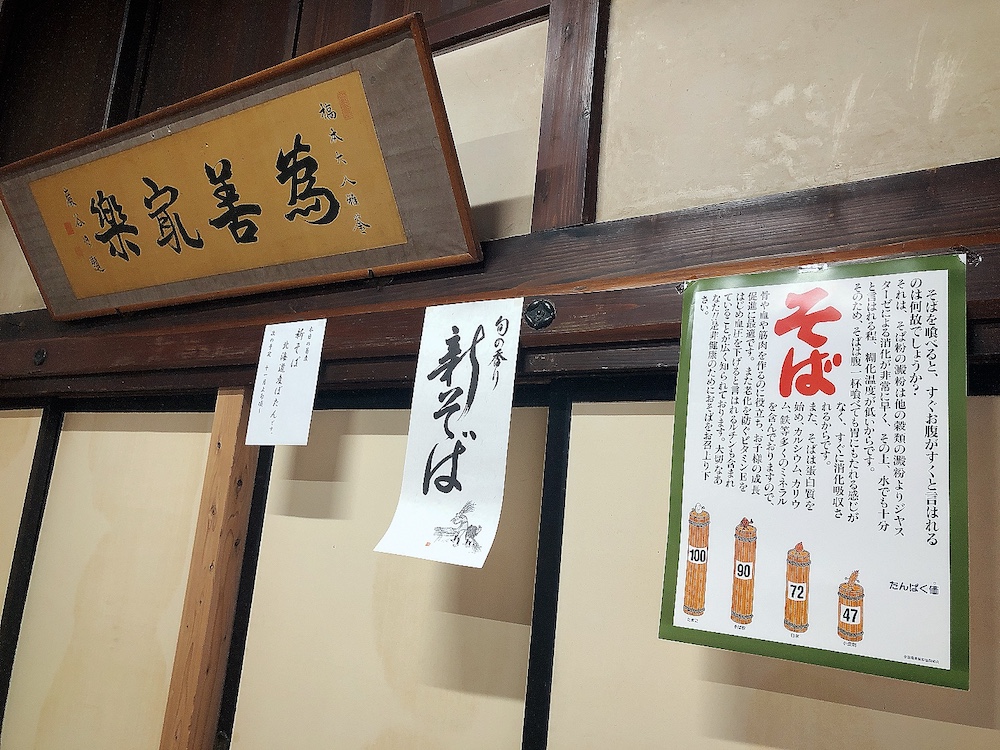 為善家樂
新そば
北海道産ぼたん
旬の香り
新そば
そば
そばを喰べると、すぐお腹がすくと言はれる
のは何故でしょうか？
それは、そば粉の澱粉は他の穀類の澱粉よりジヤス
ターゼによる消化が非常に早く、その上、水でも十分
と言はれる程、糊化温度が低いからです。
そのため、そばは腹一杯喰べても胃にもたれる感じが
なく、すぐに消化吸収さ
れるからです。
また、そばは蛋白質を
始め、カルシウム、カリウ
ム、鉄等多くのミネラル
を含んでおりますので、
骨や血や筋肉を作るのに役立ち、お子様の成長
促進に最適です。また老化を防ぐビタミンEを
はじめ血圧を下げると言はれるルチンも含まれ
ていることが広く知られております。大切なあ
なた方是非健康のためにおそばをお召上り下
さい。
たんぱく価
100
90
72
47